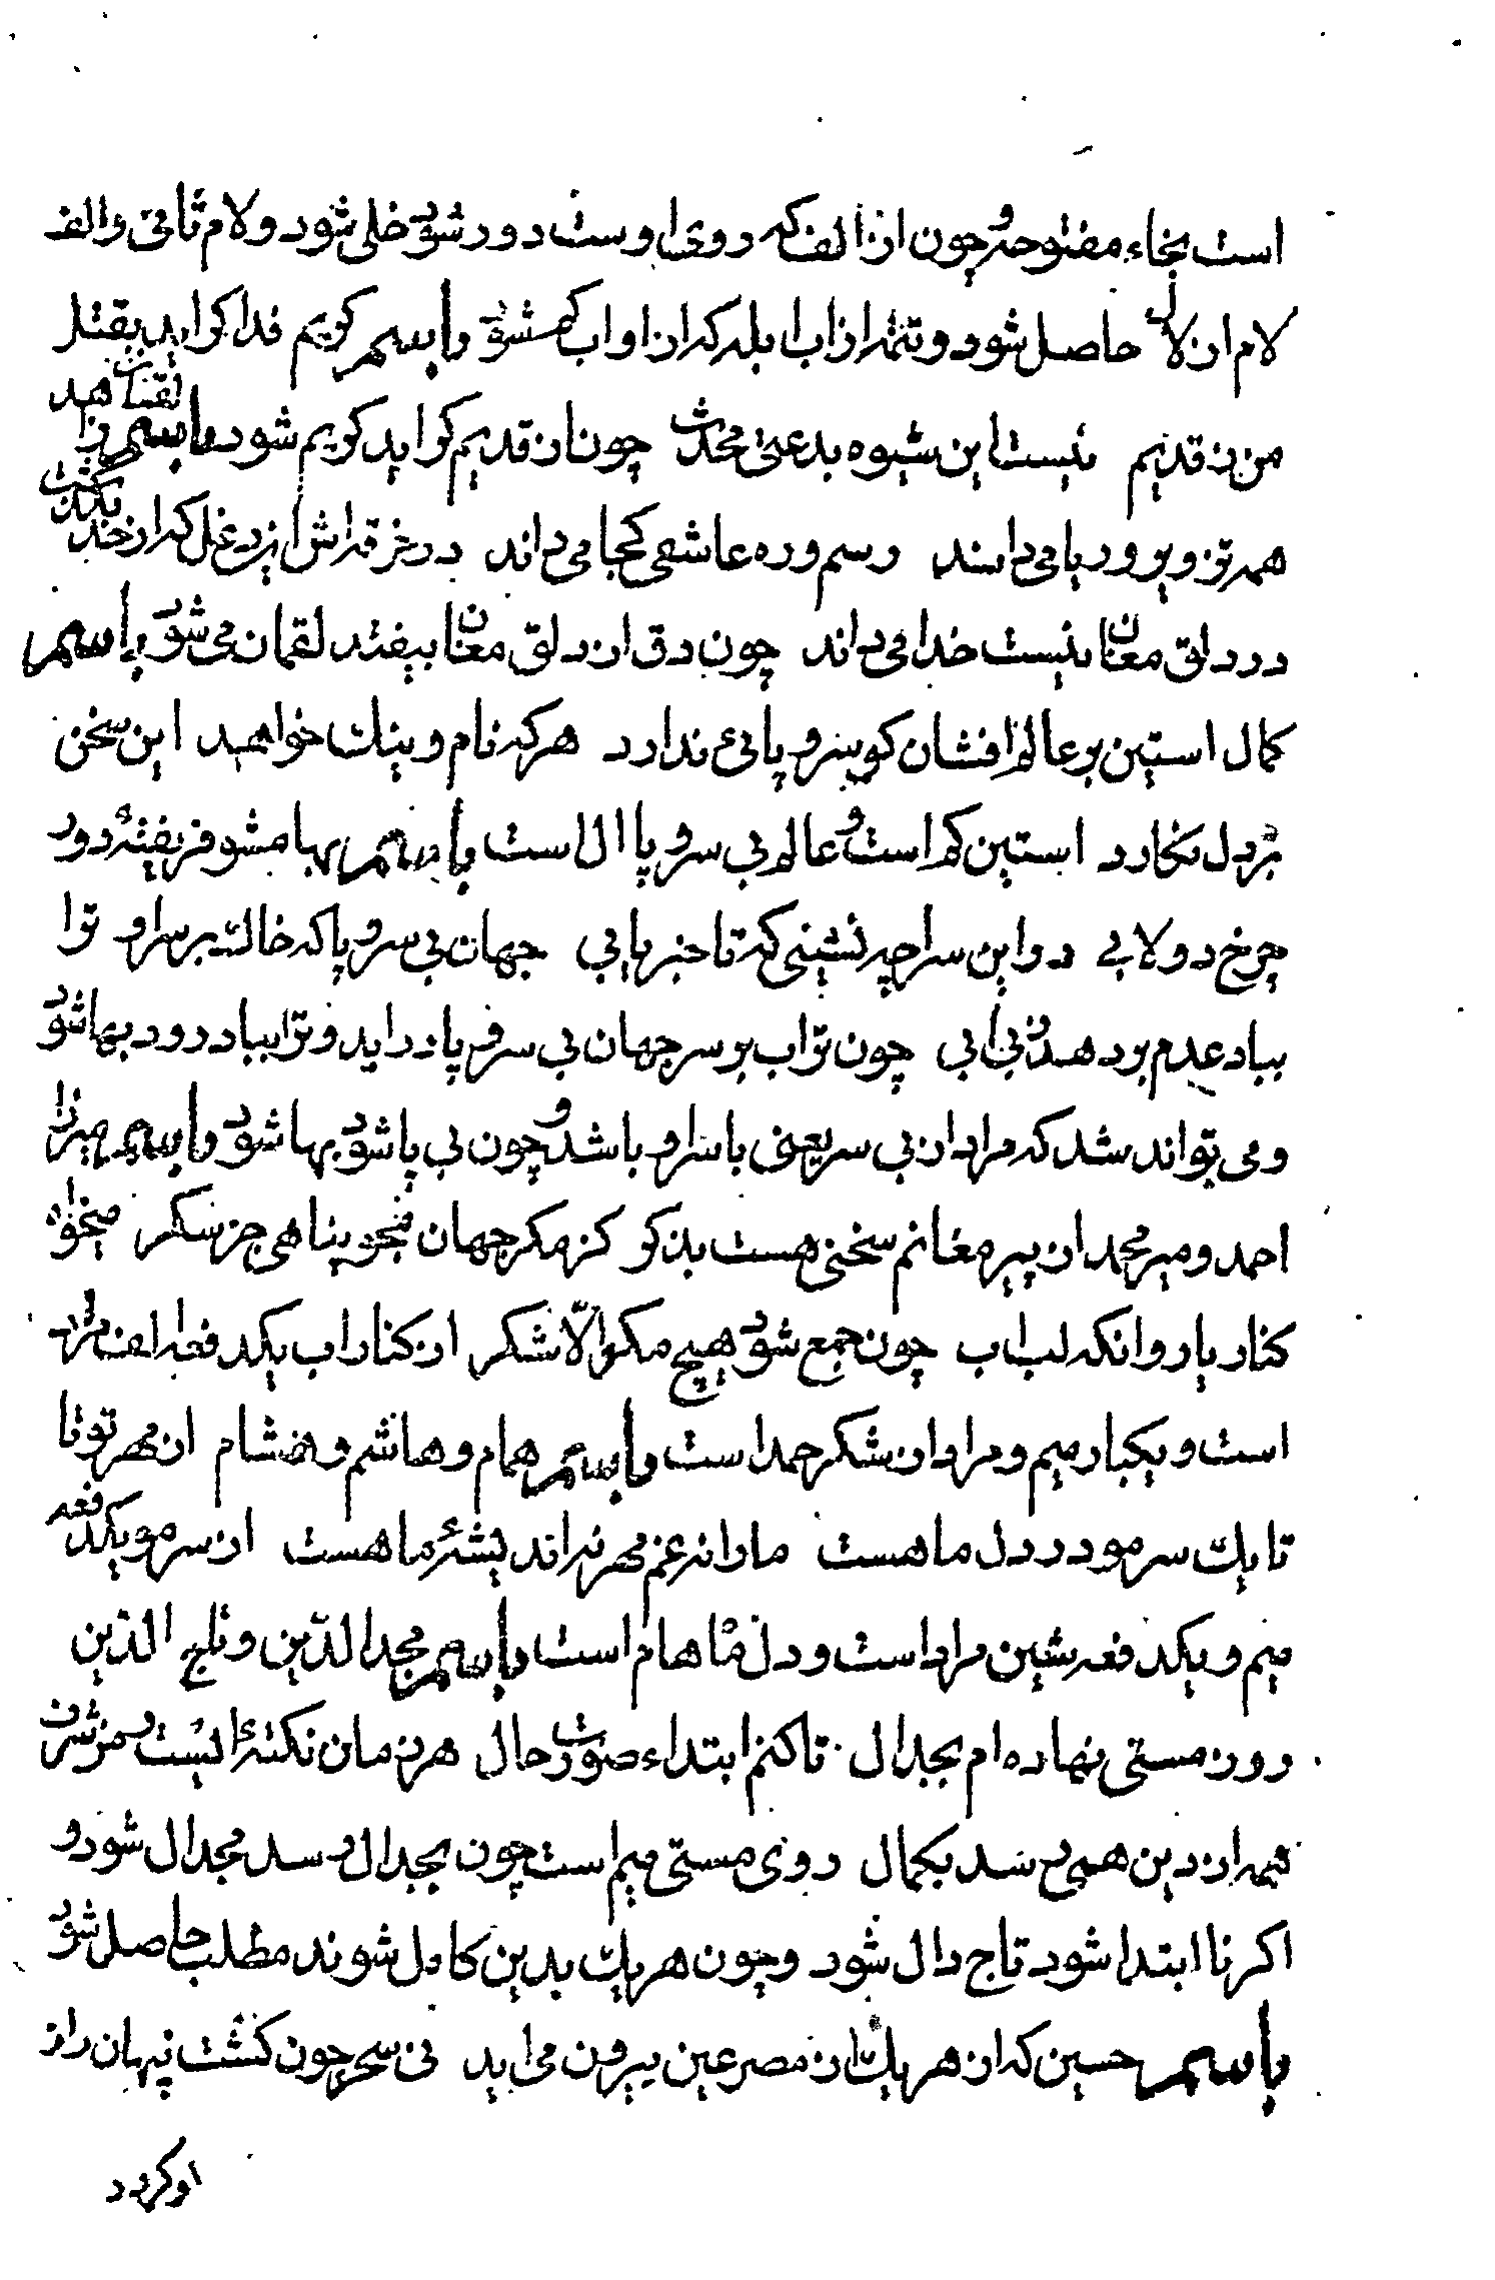 است بخاء مفتوحه و چون از الف که روی اوست دور شود خلی شود و لام ثانی و الف
لام از لال حاصل شود و تتمه از اب ابله که از او اب کم شود باسم کویم فدا کو اید بقتل
من ز قدیم نیست این شیوه بدعتی محدث چون از قدیم کو اید کویم شود باسم
همه تزویر و ریا می دانند رسم و ره عاشقی کجا می داند در خرقه اش از دغل که از خد
در دلق مغان نیست خدا می داند چون دق از دلق مغان بیفتد لقمان می شود باسم
کمال استین بر عالم افشان کو سر و پائی ندارد هر که نام و ننک خواهد این سخن
بر دل نکارد استین کم است و عالم بی سر و پا ال است باسم بها مشو فریفته دور
چرخ دولابی در این سراچه نشینی که تا خبر یابی جهان بی سر و پا که خاک بر سر او ترا
بباد عدم بر دهد بی ابی چون تراب بر سر جهان بی سر و پا در اید و ترا بباد رود بها شود
و می تواند شد که مراد از بی سر یعنی با سر او باشد و چون بی پا شود بها شود باسم میرزا
احمد و میر محمد از پیر مغانم سخنی هست بذکو کز مکر جهان مجو پناهی جز شکر میخواه
کنار یار وانکه لب اب چون جمع شود هیچ مکو الّا شکر از کنار اب یکدفعه الف مراد
است و یکبار میم و مراد از شکر حمد است باسم همام و هاشم و هشام از مهر تو تا
تا یک سر مو در دل ما هست ما را نه غم مهر نه اندیشۀ ما هست از سر مو یکدفعه
میم و یکدفعه شین مراد است و دل ما هام است باسم مجد الدّین و تاج الدّین
رو ز مستی نهاده ام بجدال تا کنم ابتداء صورت حال هر زمان نکتۀ ایست
همه از دین همی رسد بکمال روی مستی میم است چون بجدال رسد مجدال شود و
اکر تا ابتدا شود تاج دال شود و چون هر یک بدین کامل شوند مطلب حاصل شود
باسم حسین که از هر یک از مصرعین بیرون می اید نی سحر چون کشت نهان راز
او کردد